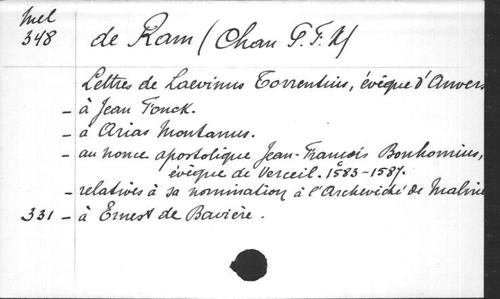 Mel
348 de Ram (Chan P. F. X)
Lettres de Laevinus Torrentius, évêque d'Anvers
- à Jean Fonck.
- à Arias Montanus.
- au nonce apostolique Jean-François Bonhomius,
évêque de Verceil. 1583-1587.
- relatives à sa nomination à l'Archevêché de Malines
331 - à Ernest de Bavière.